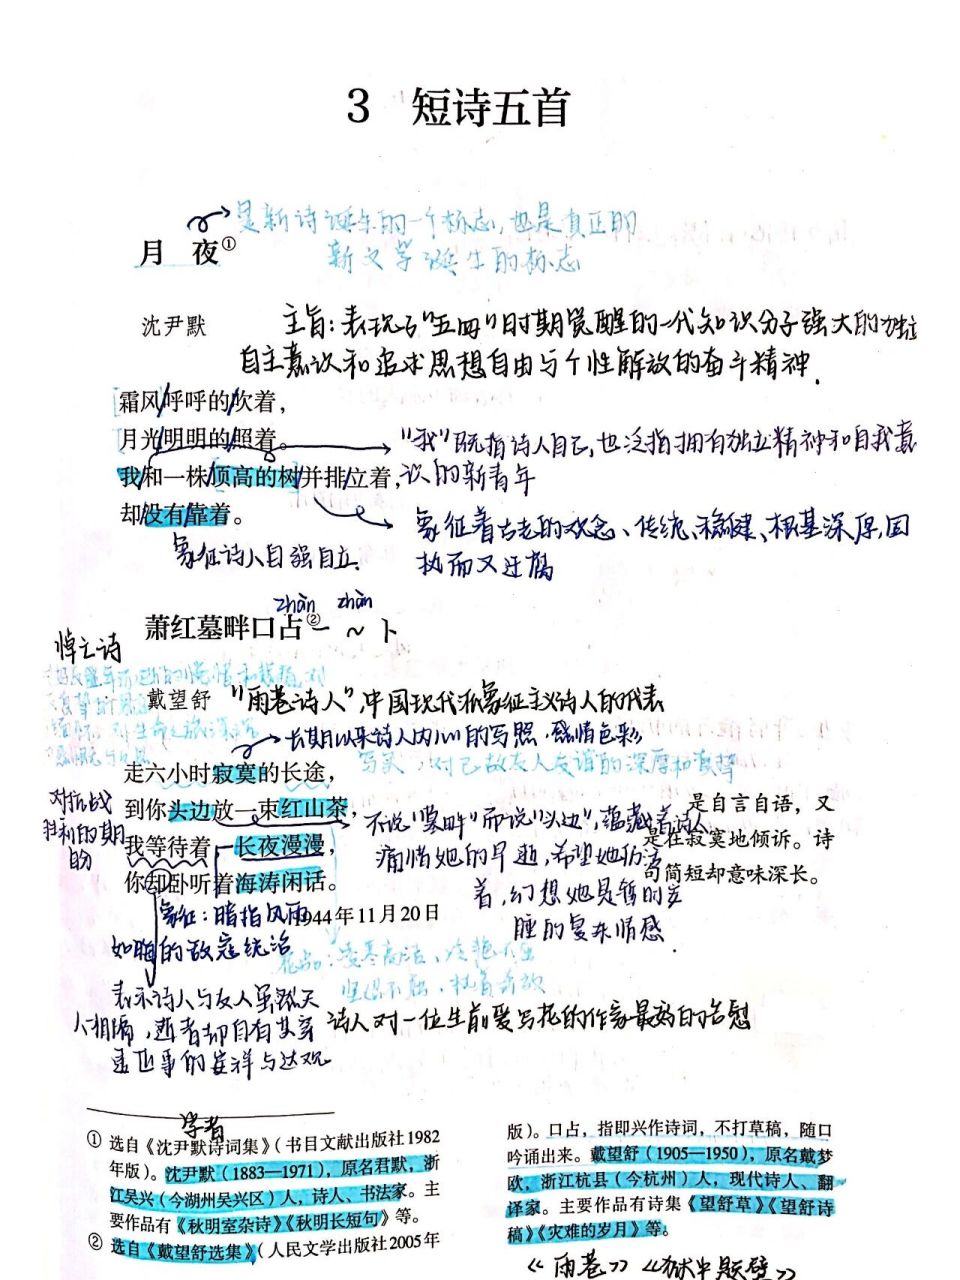 3 短诗五首
是新诗诞生的一个标志,也是真正的
月 夜①
新文学诞生的标志
沈尹默
主旨:表现了"五四"时期觉醒的一代知识分子强大的独立
自主意识和追求思想自由与个性解放的奋斗精神.
霜风/呼呼的/吹着,
月光/明明的/照着。
"我"既指诗人自己,也泛指拥有独立精神和自我意
我/和一株/顶高的树/并排/立着,
识的新青年
却/没有/靠着。
象征着古老的观念、传统、稳健、根基深厚,固
执而又迂腐
象征诗人自强自立.
zhàn zhān
萧红墓畔口占②
一 ~ 卜
悼亡诗
戴望舒
"雨巷诗人",中国现代派象征主义诗人的代表
长期以来诗人内心的写照,感情色彩
走六小时寂寞的长途,
写实,对已故友人友谊的深厚和真挚
到你头边放一束红山茶,
对抗战
胜利的期
盼
不说"墓畔"而说"头边",蕴藏着诗人
痛惜她的早逝,希望她仍活
着,幻想她是暂时安
睡的复杂情感.
是自言自语,又
是在寂寞地倾诉。诗
句简短却意味深长。
我等待着,长夜漫漫,
你却卧听着海涛闲话。
1944年11月20日
象征:暗指风雨
如晦的敌寇统治
表示诗人与友人虽然天
人相隔,逝者却自有其穿
透世事的安详与达观
诗人对一位生前爱写花的作家最好的告慰
学者
① 选自《沈尹默诗词集》(书目文献出版社1982
年版)。沈尹默(1883—1971),原名君默,浙
江吴兴(今湖州吴兴区)人,诗人、书法家。主
要作品有《秋明室杂诗》《秋明长短句》等。
② 选自《戴望舒选集》(人民文学出版社2005年
版)。口占,指即兴作诗词,不打草稿,随口
吟诵出来。戴望舒(1905—1950),原名戴梦
欧,浙江杭县(今杭州)人,现代诗人、翻
译家。主要作品有诗集《望舒草》《望舒诗
稿》《灾难的岁月》等。
《雨巷》《狱中题壁》